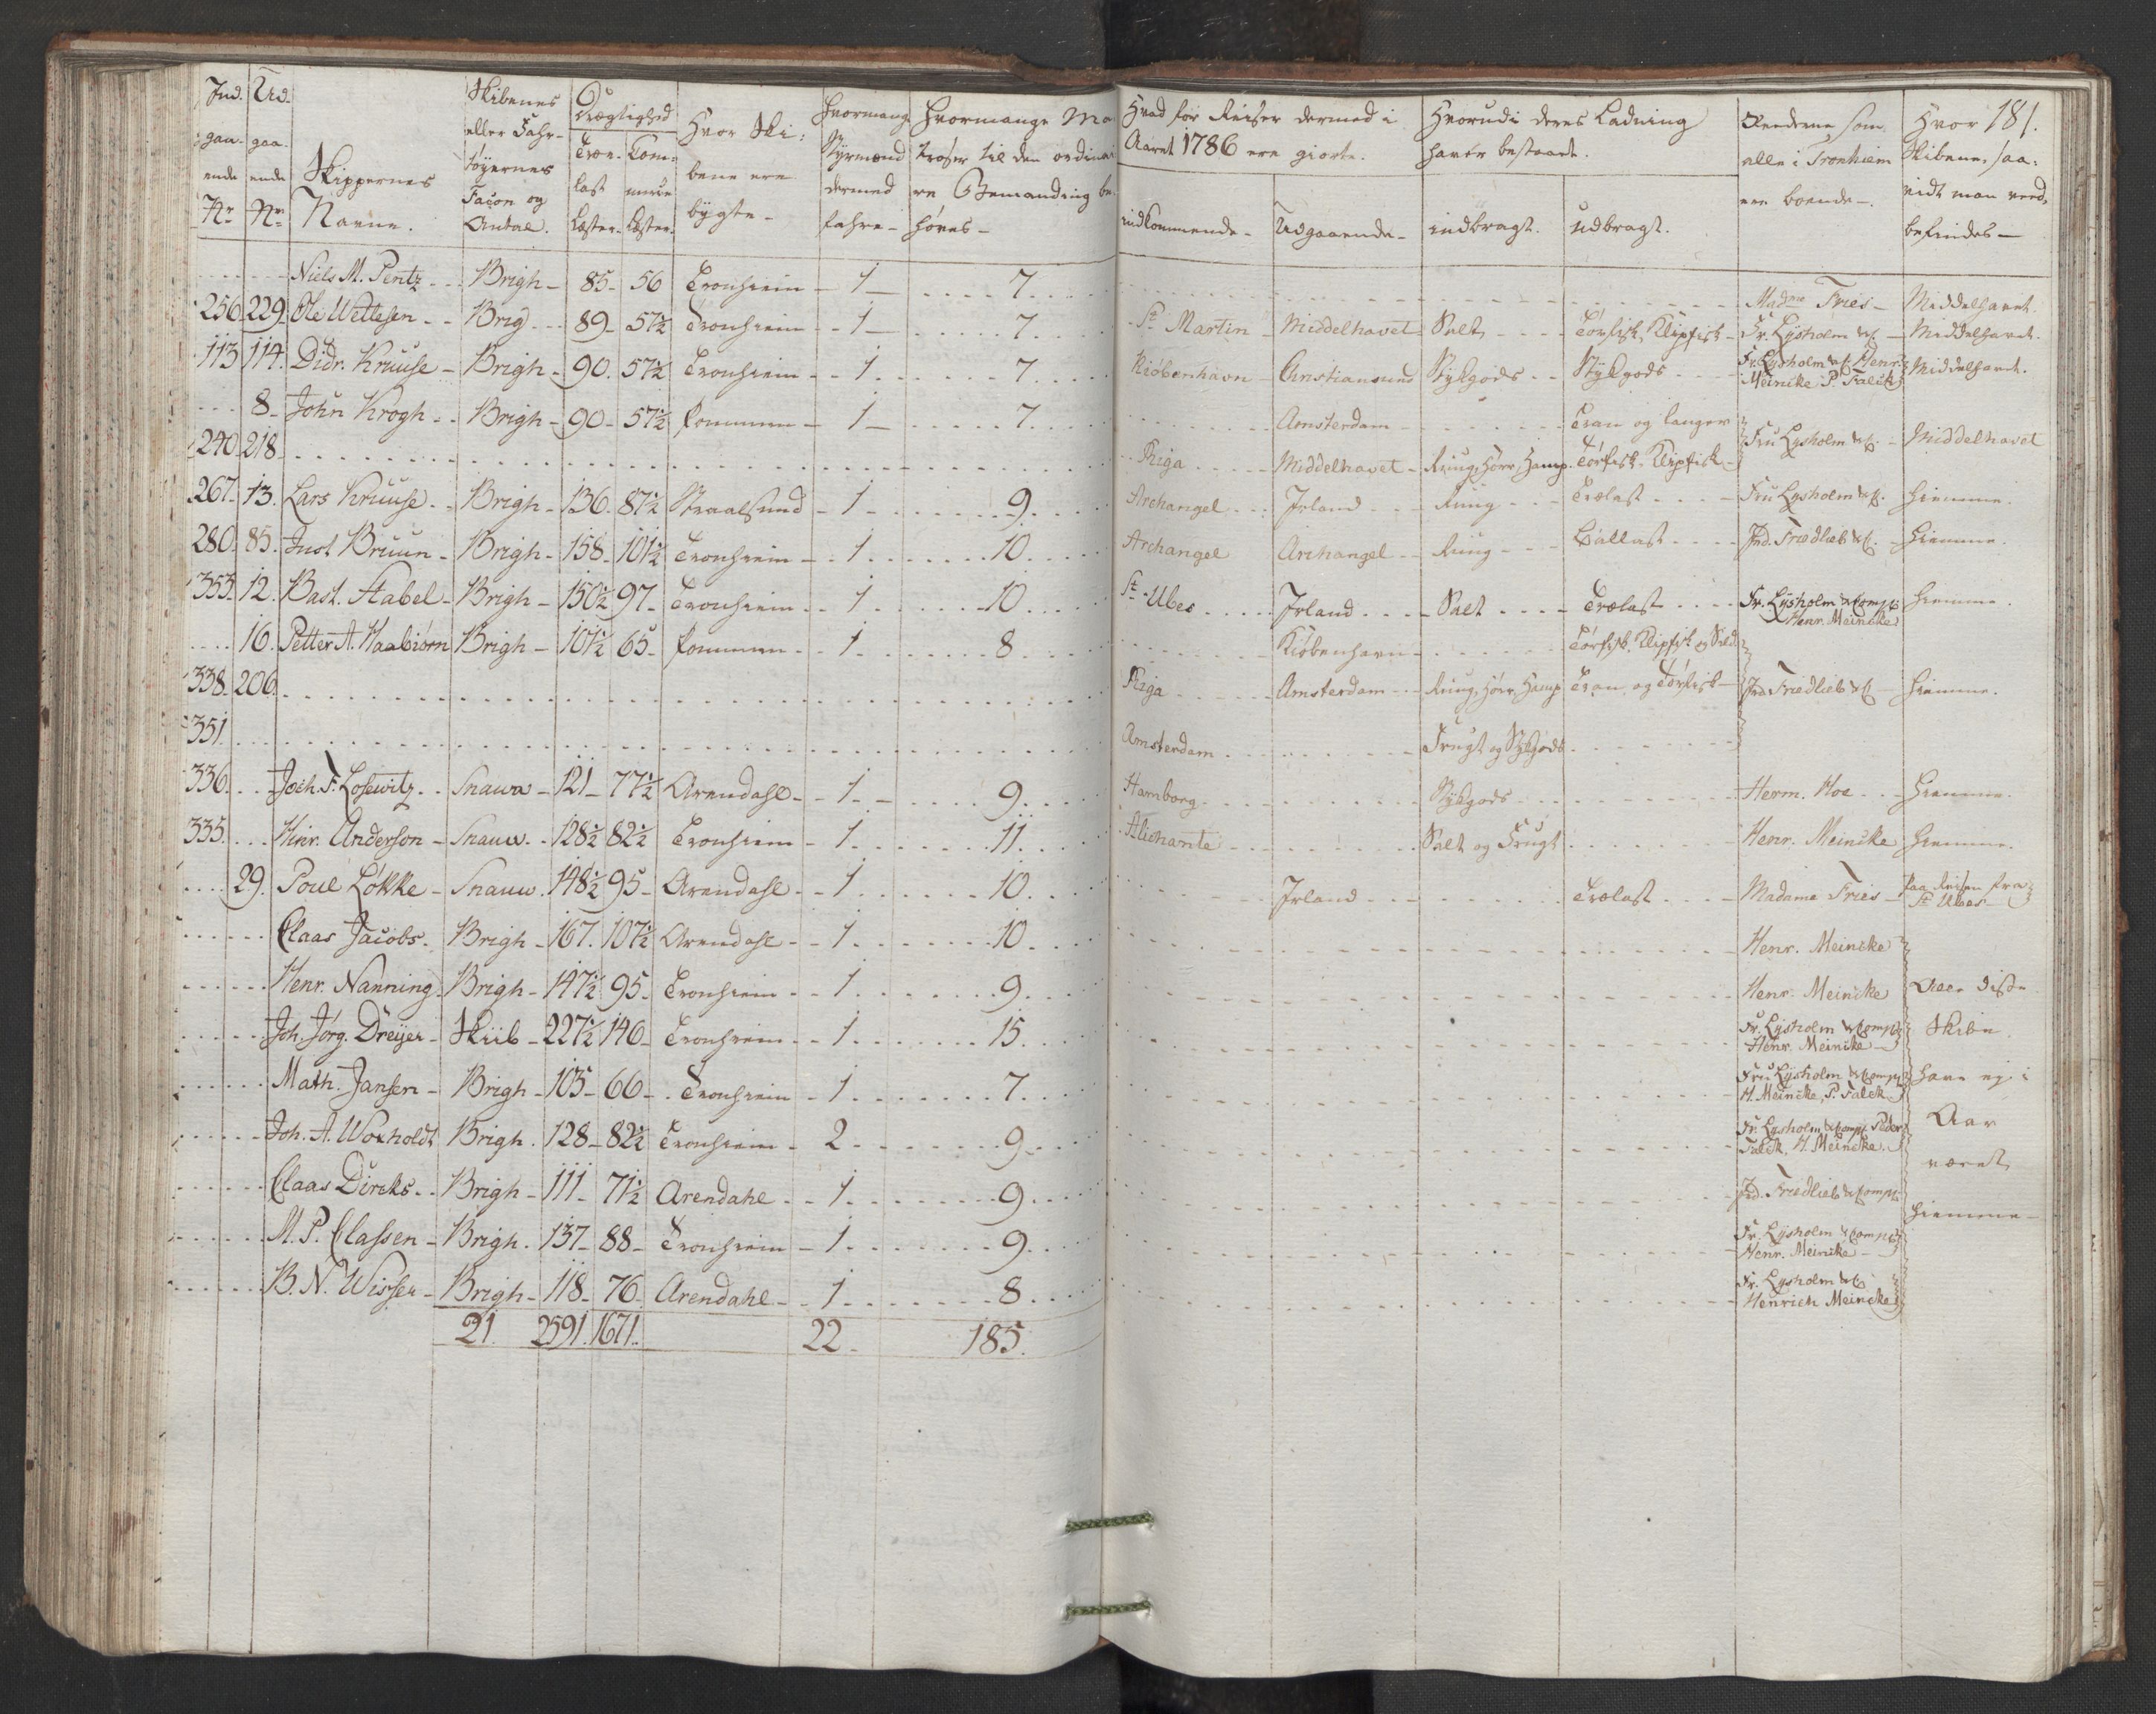 Ind- Ud-
gaa- gaa-
ende ende
No No
Skippernes
Navne.
Skibenes
eller Fahr-
töyernes
Façon og
Antal.
Drægtighed
Træe- Com-
last merce
Læster. Læster.
Hvor Ski:
bene ere
bÿgte-
Hvormange
Stÿrmænd
dermed
fahre-
Hvormange Ma
troser til den ordinai
re Bemanding be-
höves-
Hvad for Reiser dermed i
Aaret 1786 ere giorte.
indkommende- Udgaaende-
Hvorudi deres Ladning
haver bestaaet.
indbragt. udbragt.
Reederne, som
alle i Tronhiem
ere boende-.
Hvor 181.
Skibene, saa-
vidt man veed,
befindes-
Niels M. Pentz - Brigh - 85 - 56 Tronhiem - 1 - 7 Madme Fries - Middelhavet.
256 229 Ole Wettesen - Brig - 89 - 57½ Tronhiem - 1 - 7 St Martin - Middelhavet Salt - Törfisk, Klipfisk - Fr. Lÿsholm & C. - Middelhavet.
113 114. Didr. Kruuse - Brigh - 90. 57½ Tronhiem - 1 7 Kiöbenhavn - Christiansund Stÿkgods - Stÿkgods - Fr. Lÿsholm & C. Henr. Middelhavet.
Meincke P. Falck
8 - John Krogh - Brigh - 90 - 57½ Pommern - 1 - 7 Amsterdam - Tran og langer
240 218 Riga - Middelhavet - Rug, Hör, Hamp. Törfisk. Klipfisk - Fru Lysholm & C. - Middelhavet
267. 13. Lars Kruuse - Brigh - 136. 87½ Straalsund - 1 - 9 Archangel - Irland - Rug - Trælast - Fru Lysholm & C. hiemme.
280. 85. Just Bruun - Brigh - 158 - 101½ Tronhiem - 1 10 Archangel Archangel - Rug - Ballast - Frd. Friedlieb & C. - hiemme.
353. 12. Bast. Stabel - Brigh - 150½ 97 - Tronhiem - 1 10 St Ubes - Irland - Salt - Trælast - Fr. Lÿsholm & Comp. hiemme.
Henr. Meincke
16. Petter A. Haabiörn Brigh - 101½ 65 - Pommern - 1 8 Kiöbenhavn - Törfisk. Klipfisk og Sild.
338. 206. Riga - Amsterdam - Rug, Hör, Hamp Tran og Törfisk - Frd. Friedlieb & C - hiemme.
351. Amsterdam - Frugt og Stÿkgods
336. Joch. F. Losewitz - Snauw - 121 - 77½ Arendahl - 1 - 9 Hamborg - Stÿkgods - Herm. Hoe - hiemme.
335. Hinr. Anderson - Snauw - 128½ 82½ Tronhiem - 1 11 Alichante - Salt og Frugt Henr. Meincke hiemme.
29. Poul Lökke - Snauw. 148½ 95 - Arendahl - 1 10 Irland - Trælast - Madame Fries - Paa Reisen fra
St Ubes -
Claas Jacobs. Brigh - 167. 107½ Arendahl - 1 10 Henr. Meincke
Henr. Nanning. Brigh - 147½ 95 - Tronhiem - 1 9 Henr. Meincke Alle disse
Joh. Jörg. Dreÿer - Skiib - 227½ 146 - Tronhiem - 1 15 Fr. Lÿsholm & Comp. Skibe
Henr. Meincke
Math. Jansen - Brigh - 103 - 66 - Tronhiem - 1 7 Fru Lÿsholm & Comp. have ej i
H. Meincke, P. Falck
Joh. A. Woxholdt Brigh. 128 - 82½ Tronhiem - 2 9 Fr. Lysholm & Comp. Peder Aar
Falck, H. Meincke. været
Claas Dircks - Brigh - 111 - 71½ Arendahl - 1 9 Frd. Friedlieb & Comp.
hiemme -
M. P. Classen - Brigh. 137 - 88 - Tronhiem - 1 9 Fr. Lÿsholm & Comp.
Henr. Meincke -
B. N. Wisser - Brigh - 118 - 76 Arendahl - 1 8 Fr. Lysholm & C.
Henrich Meincke
21. 2591. 1671. 22. 185.